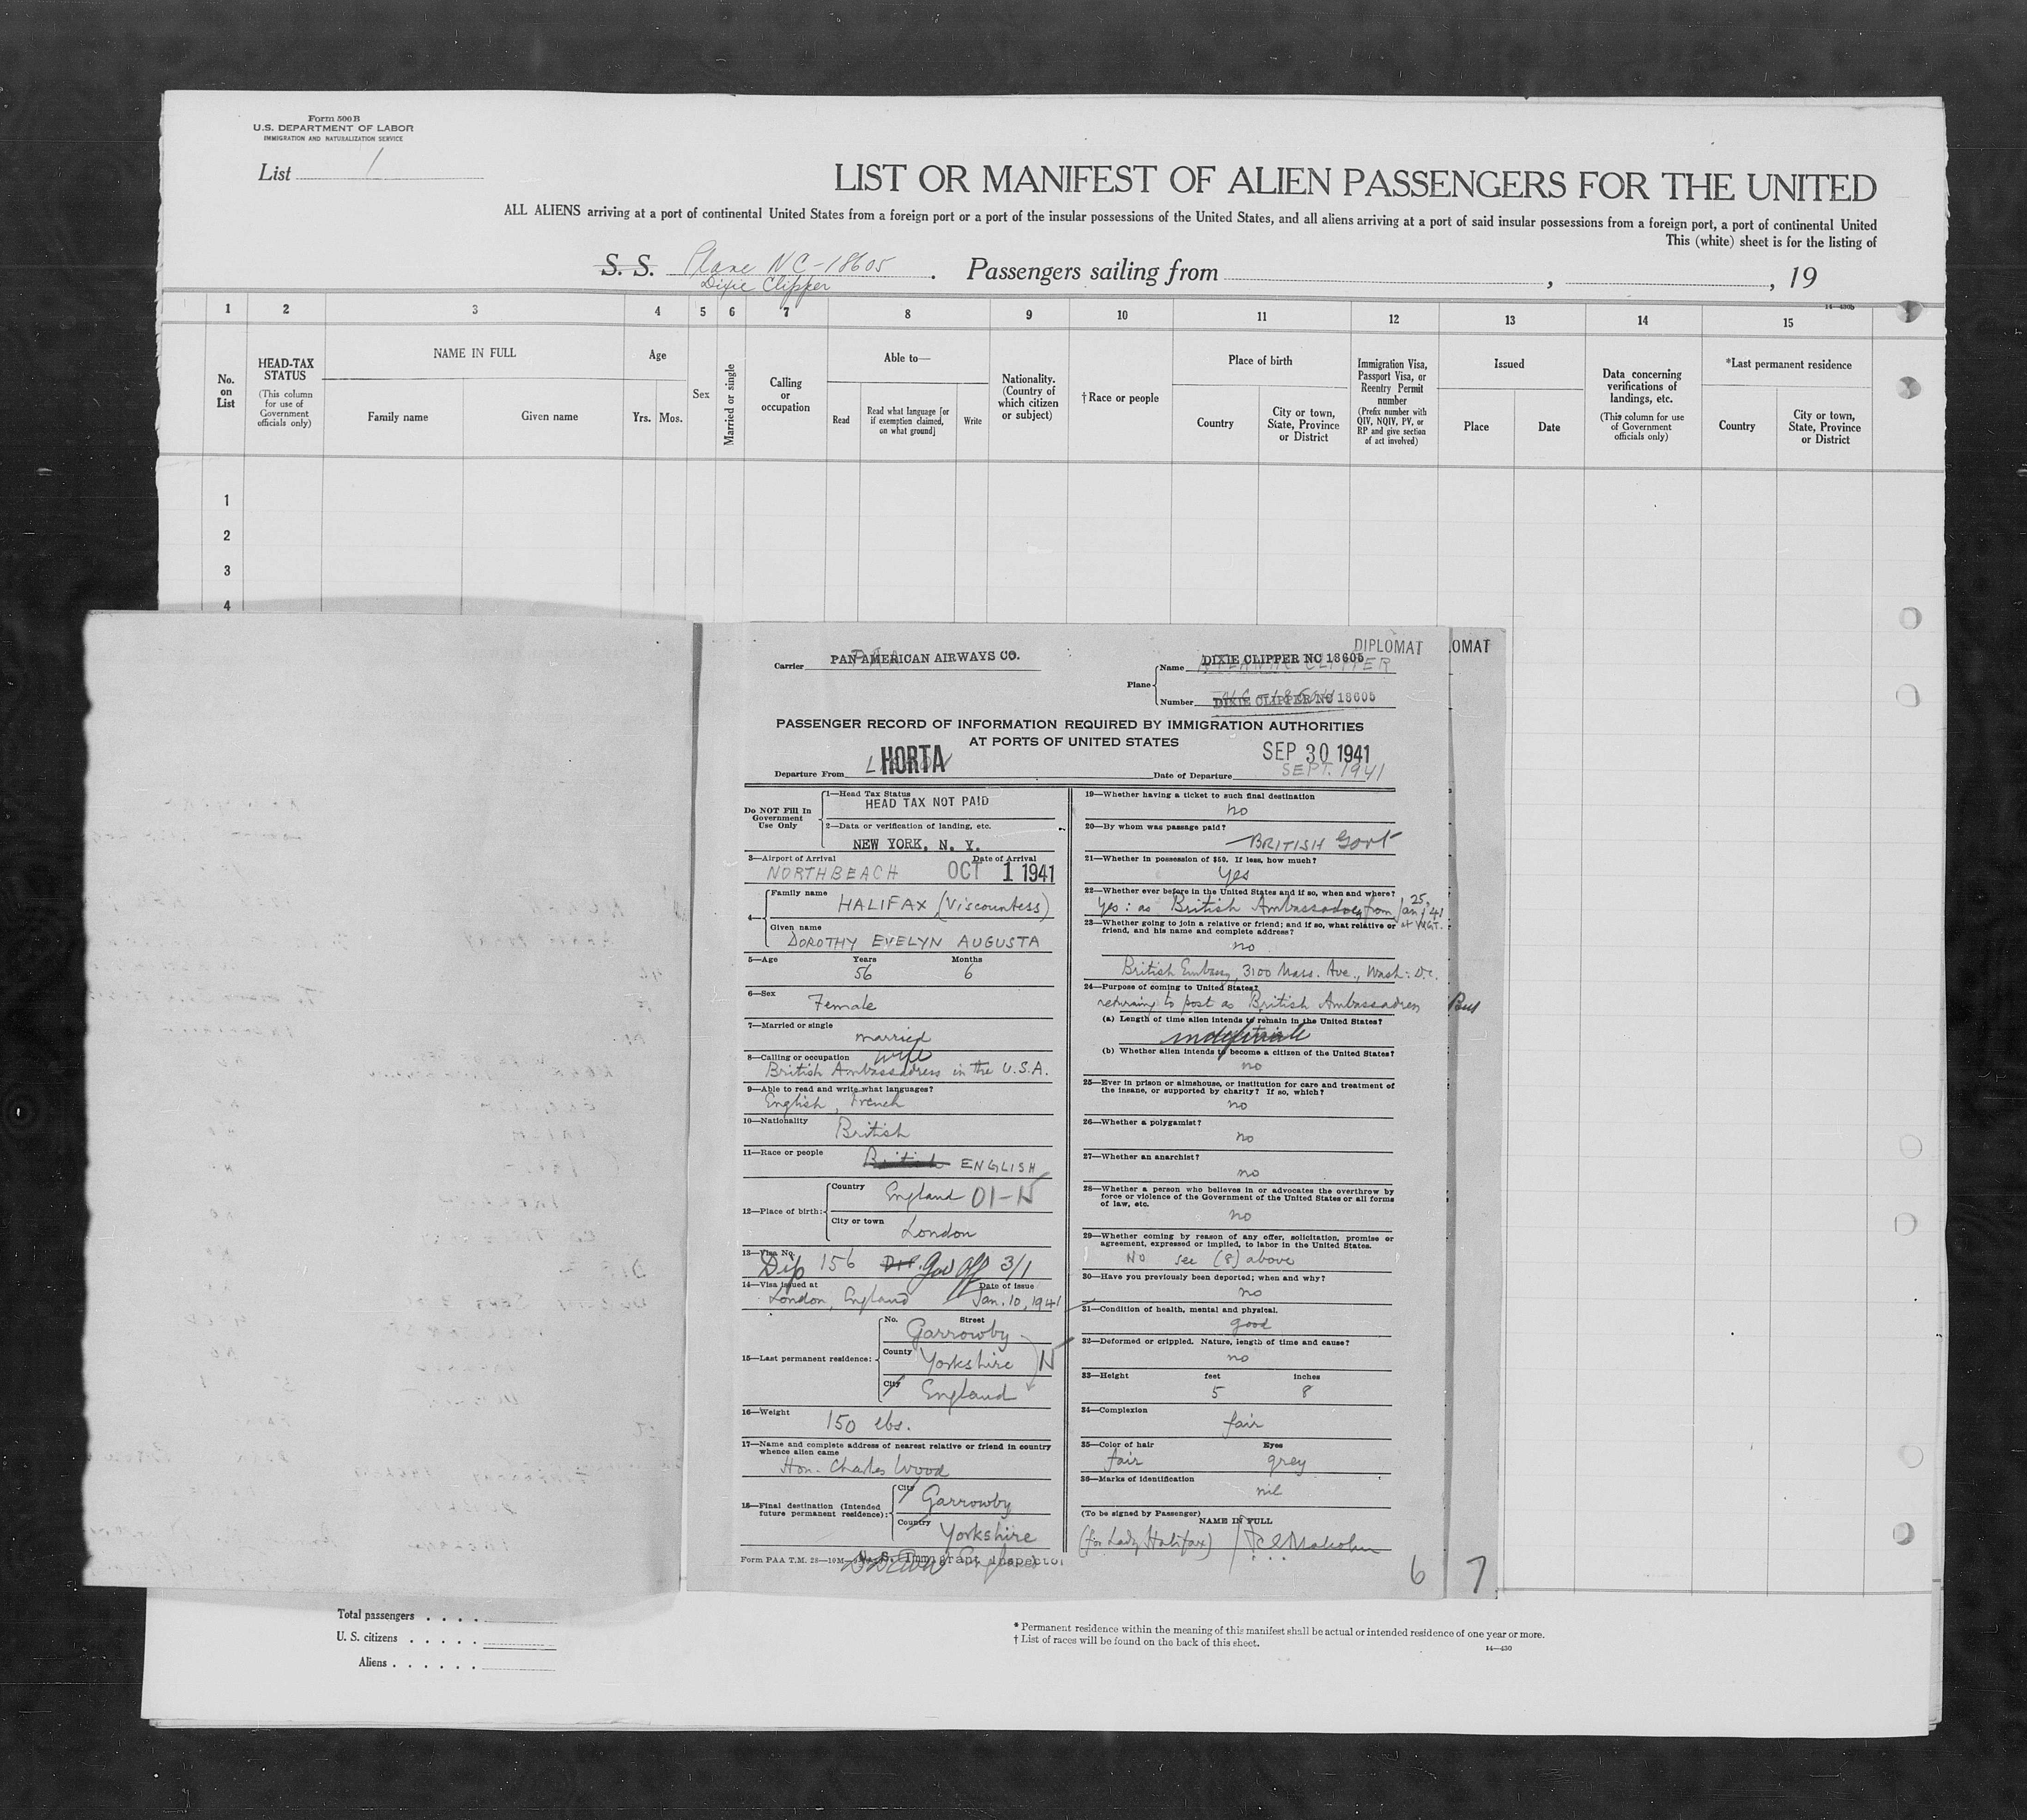 Form 500 B
U.S. DEPARTMENT OF LABOR
IMMIGRATION AND NATURALIZATION SERVICE
List 1
LIST OR MANIFEST OF ALIEN PASSENGERS FOR THE UNITED
ALL ALIENS arriving at a port of continental United States from a foreign port or a port of the insular possessions of the United States, and all aliens arriving at a port of said insular possessions from a foreign port, a port of continental United
This (white) sheet is for the listing of
S. S. Plane NC-18605 . Passengers sailing from , , 19
Dixie Clipper
14—430b
1 2 3 4 5 6 7 8 9 10 11 12 13 14 15
No. on List
HEAD-TAX STATUS
(This column for use of Government officials only)
NAME IN FULL
Family name
Given name
Age
Yrs.
Mos.
Sex
Married or single
Calling or occupation
Able to—
Read
Read what language [or if exemption claimed, on what ground]
Write
Nationality. (Country of which citizen or subject)
†Race or people
Place of birth
Country
City or town, State, Province or District
Immigration Visa, Passport Visa, or Reentry Permit number
(Prefix number with QIV, NQIV, PV, or RP and give section of act involved)
Issued
Place
Date
Data concerning verifications of landings, etc.
(This column for use of Government officials only)
*Last permanent residence
Country
City or town, State, Province or District
1
2
3
4
DIPLOMAT
OMAT
Carrier PAN AMERICAN AIRWAYS CO.
Plane
Name DIXIE CLIPPER NC 18605
Number DIXIE CLIPPER NC 18605
PASSENGER RECORD OF INFORMATION REQUIRED BY IMMIGRATION AUTHORITIES
AT PORTS OF UNITED STATES
Departure From HORTA
Date of Departure SEP 30 1941
SEPT. 1941
Do NOT Fill In Government Use Only
1—Head Tax Status
HEAD TAX NOT PAID
2—Data or verification of landing, etc.
NEW YORK, N. Y.
3—Airport of Arrival Date of Arrival
NORTHBEACH OCT 1 1941
4—
Family name
HALIFAX (Viscountess)
Given name
DOROTHY EVELYN AUGUSTA
5—Age Years Months
56 6
6—Sex
Female
7—Married or single
married
8—Calling or occupation wife
British Ambassadress in the U.S.A.
9—Able to read and write what languages?
English, French
10—Nationality
British
11—Race or people
British ENGLISH
12—Place of birth:
Country
England 01-N
City or town
London
13—Visa No.
Dip 156 Dip. Gov Off 3/1
14—Visa issued at Date of Issue
London, England Jan. 10, 1941
15—Last permanent residence:
No. Street
Garrowby
County
Yorkshire N
City
England
16—Weight
150 lbs.
17—Name and complete address of nearest relative or friend in country whence alien came
Hon. Charles Wood
18—Final destination (Intended future permanent residence):
City
Garrowby
Country
Yorkshire
England
Form PAA T.M. 28—10M—
U. S. Immigrant Inspector
19—Whether having a ticket to such final destination
no
20—By whom was passage paid?
BRITISH Govt
21—Whether in possession of $50. If less, how much?
Yes
22—Whether ever before in the United States and if so, when and where?
Yes: as British Ambassadress from Jan 25, 41
at WGT.
23—Whether going to join a relative or friend; and if so, what relative or friend, and his name and complete address?
no
British Embassy, 3100 Mass. Ave., Wash: D.C.
24—Purpose of coming to United States?
returning to post as British Ambassadress
(a) Length of time alien intends to remain in the United States?
indefinite
(b) Whether alien intends to become a citizen of the United States?
no
25—Ever in prison or almshouse, or institution for care and treatment of the insane, or supported by charity? If so, which?
no
26—Whether a polygamist?
no
27—Whether an anarchist?
no
28—Whether a person who believes in or advocates the overthrow by force or violence of the Government of the United States or all forms of law, etc.
no
29—Whether coming by reason of any offer, solicitation, promise or agreement, expressed or implied, to labor in the United States.
No see (8) above
30—Have you previously been deported; when and why?
no
31—Condition of health, mental and physical.
good
32—Deformed or crippled. Nature, length of time and cause?
no
33—Height feet inches
5 8
34—Complexion
fair
35—Color of hair Eyes
fair grey
36—Marks of identification
nil
(To be signed by Passenger)
NAME IN FULL
(for Lady Halifax)
6
7
Total passengers . . . .
U. S. citizens . . . . .
Aliens . . . . . .
* Permanent residence within the meaning of this manifest shall be actual or intended residence of one year or more.
† List of races will be found on the back of this sheet.
14—430